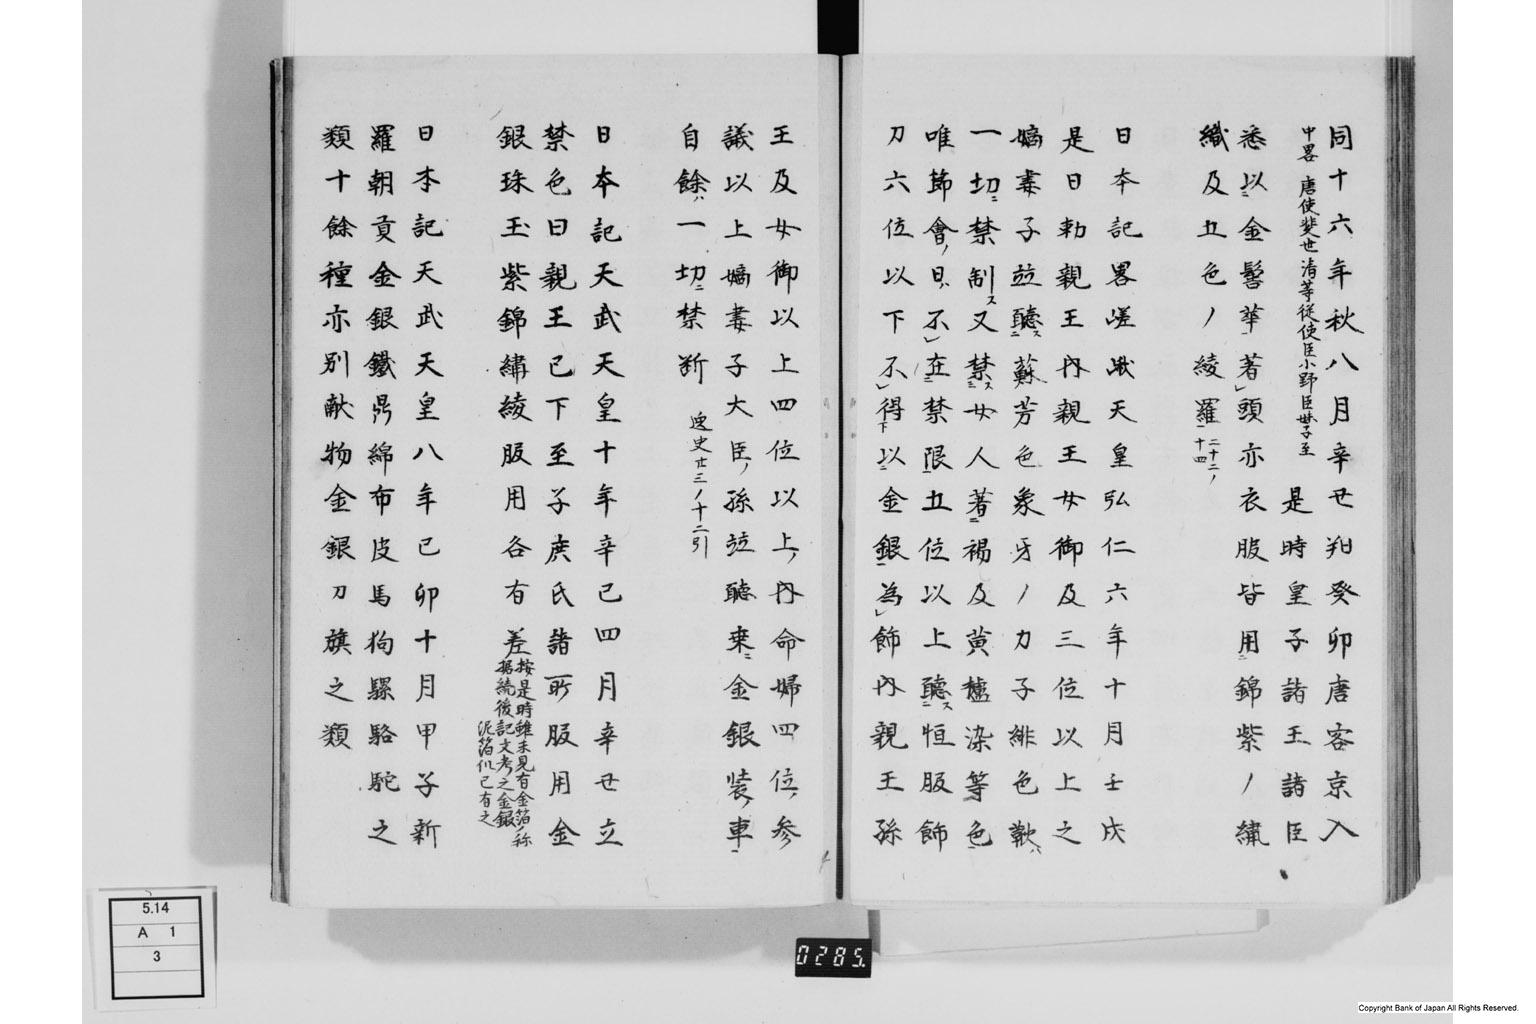 同十六年秋八月辛丑朔癸卯唐客京入
中畧 唐使裴世清等從使臣小野臣妹子至 是時皇子諸王諸臣
悉以金髻華著頭亦衣服皆用錦紫ノ繡
織及五色ノ綾羅 二十二ノ十四
日本記畧嵯峨天皇弘仁六年十月壬戌
是日勅親王内親王女御及三位以上之
嫡妻子並聽蘇芳色象牙ノ刀子緋色歟ハ
一切禁制ス又禁女人著褐及黄櫨染等色
唯節會ノ日ハ不在禁限五位以上聽恒服飾
刀六位以下不得以金銀為飾内親王孫
王及女御以上四位以上ノ内命婦四位ノ参
議以上嫡妻子大臣ノ孫竝聽乗金銀装ノ車
自餘ハ一切ニ禁断 逸史廿三ノ十二引
日本記天武天皇十年辛巳四月辛丑立
禁色曰親王已下至于庶氏諸所服用金
銀珠玉紫錦繡綾服用各有差 按是時雖未見有金箔ノ称
据続後記文考之金銀
泥箔似已有之
日本記天武天皇八年己卯十月甲子新
羅朝貢金銀鐵鼎綿布皮馬狗騾駱駝之
類十餘種亦別献物金銀刀旗之類
5.14
A 1
3
0285.
Copyright Bank of Japan All Rights Reserved.